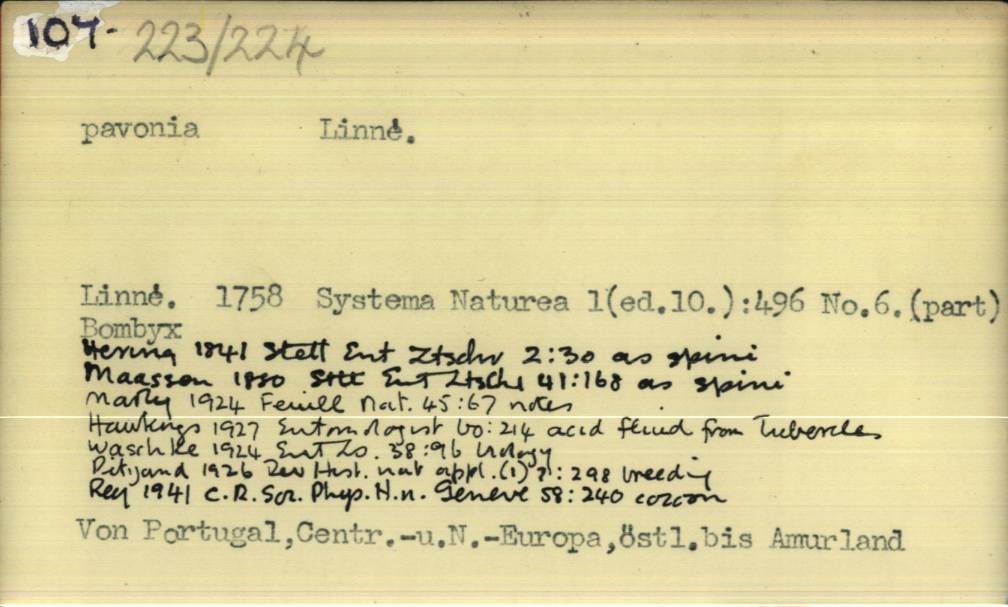 107-
223/224
pavonia Linné.
Linné. 1758 Systema Naturea 1(ed.10.):496 No.6.(part)
Bombyx
Hering 1841 Stett Ent Ztschr 2:30 as spini
Maassen 1880 Stett Ent Ztschr 41:168 as spini
1924 Feuill Nat. 45:67 notes
Hawkings 1927 Entomologist 60:214 acid fluid from Tubercles
Waschke 1924 Ent Zs. 38:96 biology
1926 Rev Hist. nat appl.(1) 7:298 breeding
Rey 1941 C.R.Soc. Phys.H.n. Geneve 58:240 cocoon
Von Portugal,Centr.-u.N.-Europa,östl.bis Amurland